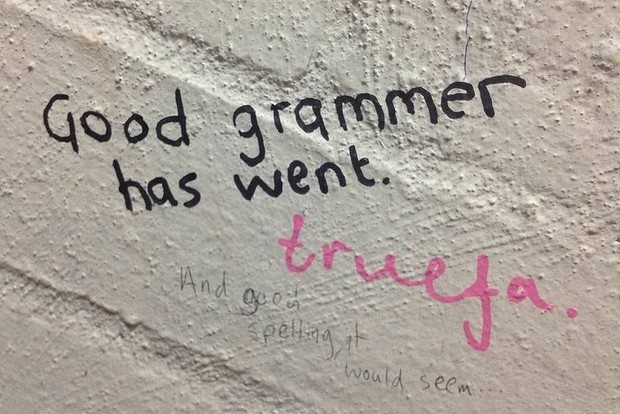 Good grammer
has went.
truefa.
And good
spelling, it
would seem...